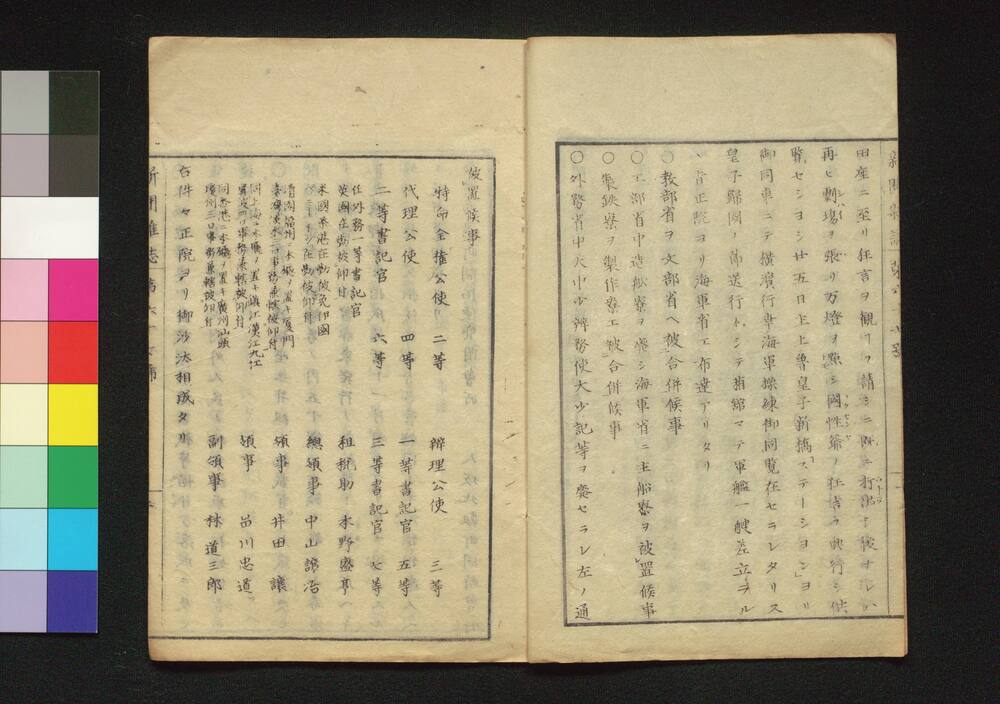 田座ニ至リ狂言ヲ観
再ヒ劇場ヲ張リ万燈ヲ點シ國性爺ノ狂言ヲ
覧セシヨシ廿五日上上魯皇子新橋「ステーシヨン」ヨリ
御同車ニテ横濱行幸海軍操練御同覧在セラレタリス
皇子歸國ノ節送行トシテ箱舘マテ軍艦一艘差立ラル
ヽ旨正院ヨリ海軍省エ布達アリタリ
○教部省ヲ文部省ヘ被合併候事
○工部省中造舩寮ヲ廃シ海軍省ニ主船寮ヲ被置候事
○製鉄寮ヲ製作寮エ被合併候事
○外務省中大中少辨務使大少記等ヲ廃セラレ左ノ通
使置候事
特命全権公使 二等 辨理公使 三等
代理公使 四等 一等書記官 五等
二等書記官 六等 三等書記官 七等
任外務一等書記官
英國在勤被仰付 租税助 本野盛亨
米國桑港在勤被免伊國
在勤被仰付 總領事 中山譲治
清國福州ニ本廳ノ置キ厦門
事務兼轄被仰付 領事 井田譲
同上海ニ本廳ノ置キ鎮江漢江九江
事務兼轄被仰付 領事 品川忠道
同香港ニ本廳ノ置キ廣州汕頭
瓊州三口事務兼轄被仰付 副領事 林道三郎
右件々正院ヨリ御沙汰相成タリ
新聞雑誌